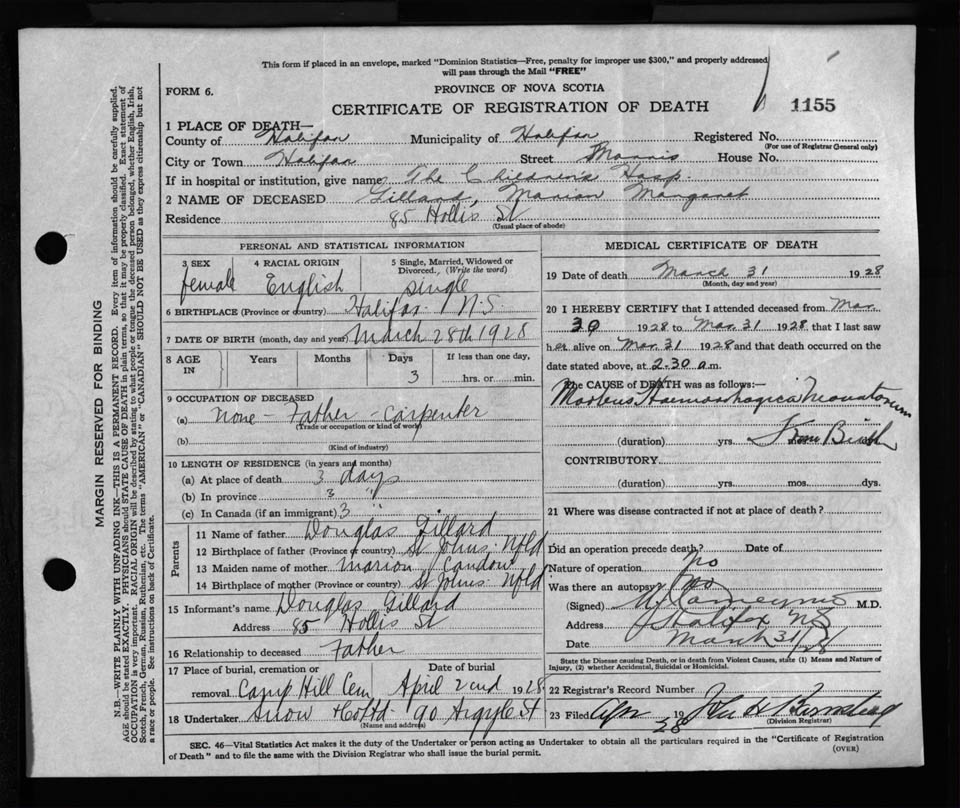 This form if placed in an envelope, marked "Dominion Statistics—Free, penalty for improper use $300," and properly addressed
will pass through the Mail "FREE"
FORM 6.
PROVINCE OF NOVA SCOTIA
CERTIFICATE OF REGISTRATION OF DEATH
1155
1 PLACE OF DEATH—
County of Halifax Municipality of Halifax Registered No.
(For use of Registrar General only)
City or Town Halifax Street Morris House No.
If in hospital or institution, give name The Children's Hosp.
2 NAME OF DECEASED Gillard, Marion Margaret
Residence 85 Hollis St
(Usual place of abode)
PERSONAL AND STATISTICAL INFORMATION
3 SEX 4 RACIAL ORIGIN 5 Single, Married, Widowed or Divorced, (Write the word)
female English single
6 BIRTHPLACE (Province or country) Halifax N.S
7 DATE OF BIRTH (month, day and year) March 28th 1928
8 AGE IN Years Months Days If less than one day,
3 hrs. or min.
9 OCCUPATION OF DECEASED
(a) None - Father - Carpenter
(Trade or occupation or kind of work)
(b)
(Kind of industry)
10 LENGTH OF RESIDENCE (in years and months)
(a) At place of death 3 days
(b) In province 3 "
(c) In Canada (if an immigrant) 3 "
Parents
11 Name of father Douglas Gillard
12 Birthplace of father (Province or country) St Johns Nfld
13 Maiden name of mother Marion Candow
14 Birthplace of mother (Province or country) St Johns Nfld
15 Informant's name Douglas Gillard
Address 85 Hollis St
16 Relationship to deceased Father
17 Place of burial, cremation or Date of burial
removal Camp Hill Cem April 2nd 1928
18 Undertaker Snow & Co Ltd 90 Argyle St
(Name and address)
MEDICAL CERTIFICATE OF DEATH
19 Date of death March 31 1928
(Month, day and year)
20 I HEREBY CERTIFY that I attended deceased from Mar.
30 1928 to Mar. 31 1928 that I last saw
her alive on Mar. 31 1928 and that death occurred on the
date stated above, at 2.30 a.m.
The CAUSE of DEATH was as follows:—
Morbus Haemorrhagica Neonatorum
(duration) yrs. from Birth
CONTRIBUTORY
(duration) yrs. mos. dys.
21 Where was disease contracted if not at place of death?
Did an operation precede death? Date of
Nature of operation No
Was there an autopsy? No
(Signed) M.D.
Address Halifax NS
Date March 31/28
State the Disease causing Death, or in death from Violent Causes, state (1) Means and Nature of
Injury, (2) whether Accidental, Suicidal or Homicidal.
22 Registrar's Record Number
23 Filed Apr 19 28
(Division Registrar)
SEC. 46—Vital Statistics Act makes it the duty of the Undertaker or person acting as Undertaker to obtain all the particulars required in the "Certificate of Registration
of Death" and to file the same with the Division Registrar who shall issue the burial permit.
(OVER)
MARGIN RESERVED FOR BINDING
N.B. WRITE PLAINLY WITH UNFADING INK—THIS IS A PERMANENT RECORD. Every item of information should be carefully supplied.
AGE should be stated EXACTLY. PHYSICIANS should STATE CAUSE OF DEATH in plain terms, so that it may be properly classified. Exact statement of
OCCUPATION is very important. RACIAL ORIGIN will be described by stating to what people or tongue the deceased person belonged, whether English, Irish,
Scotch, French, German, Russian, Ruthenian, etc. The terms "AMERICAN" or "CANADIAN" SHOULD NOT BE USED as they express citizenship but not
a race or people. See instructions on back of Certificate.